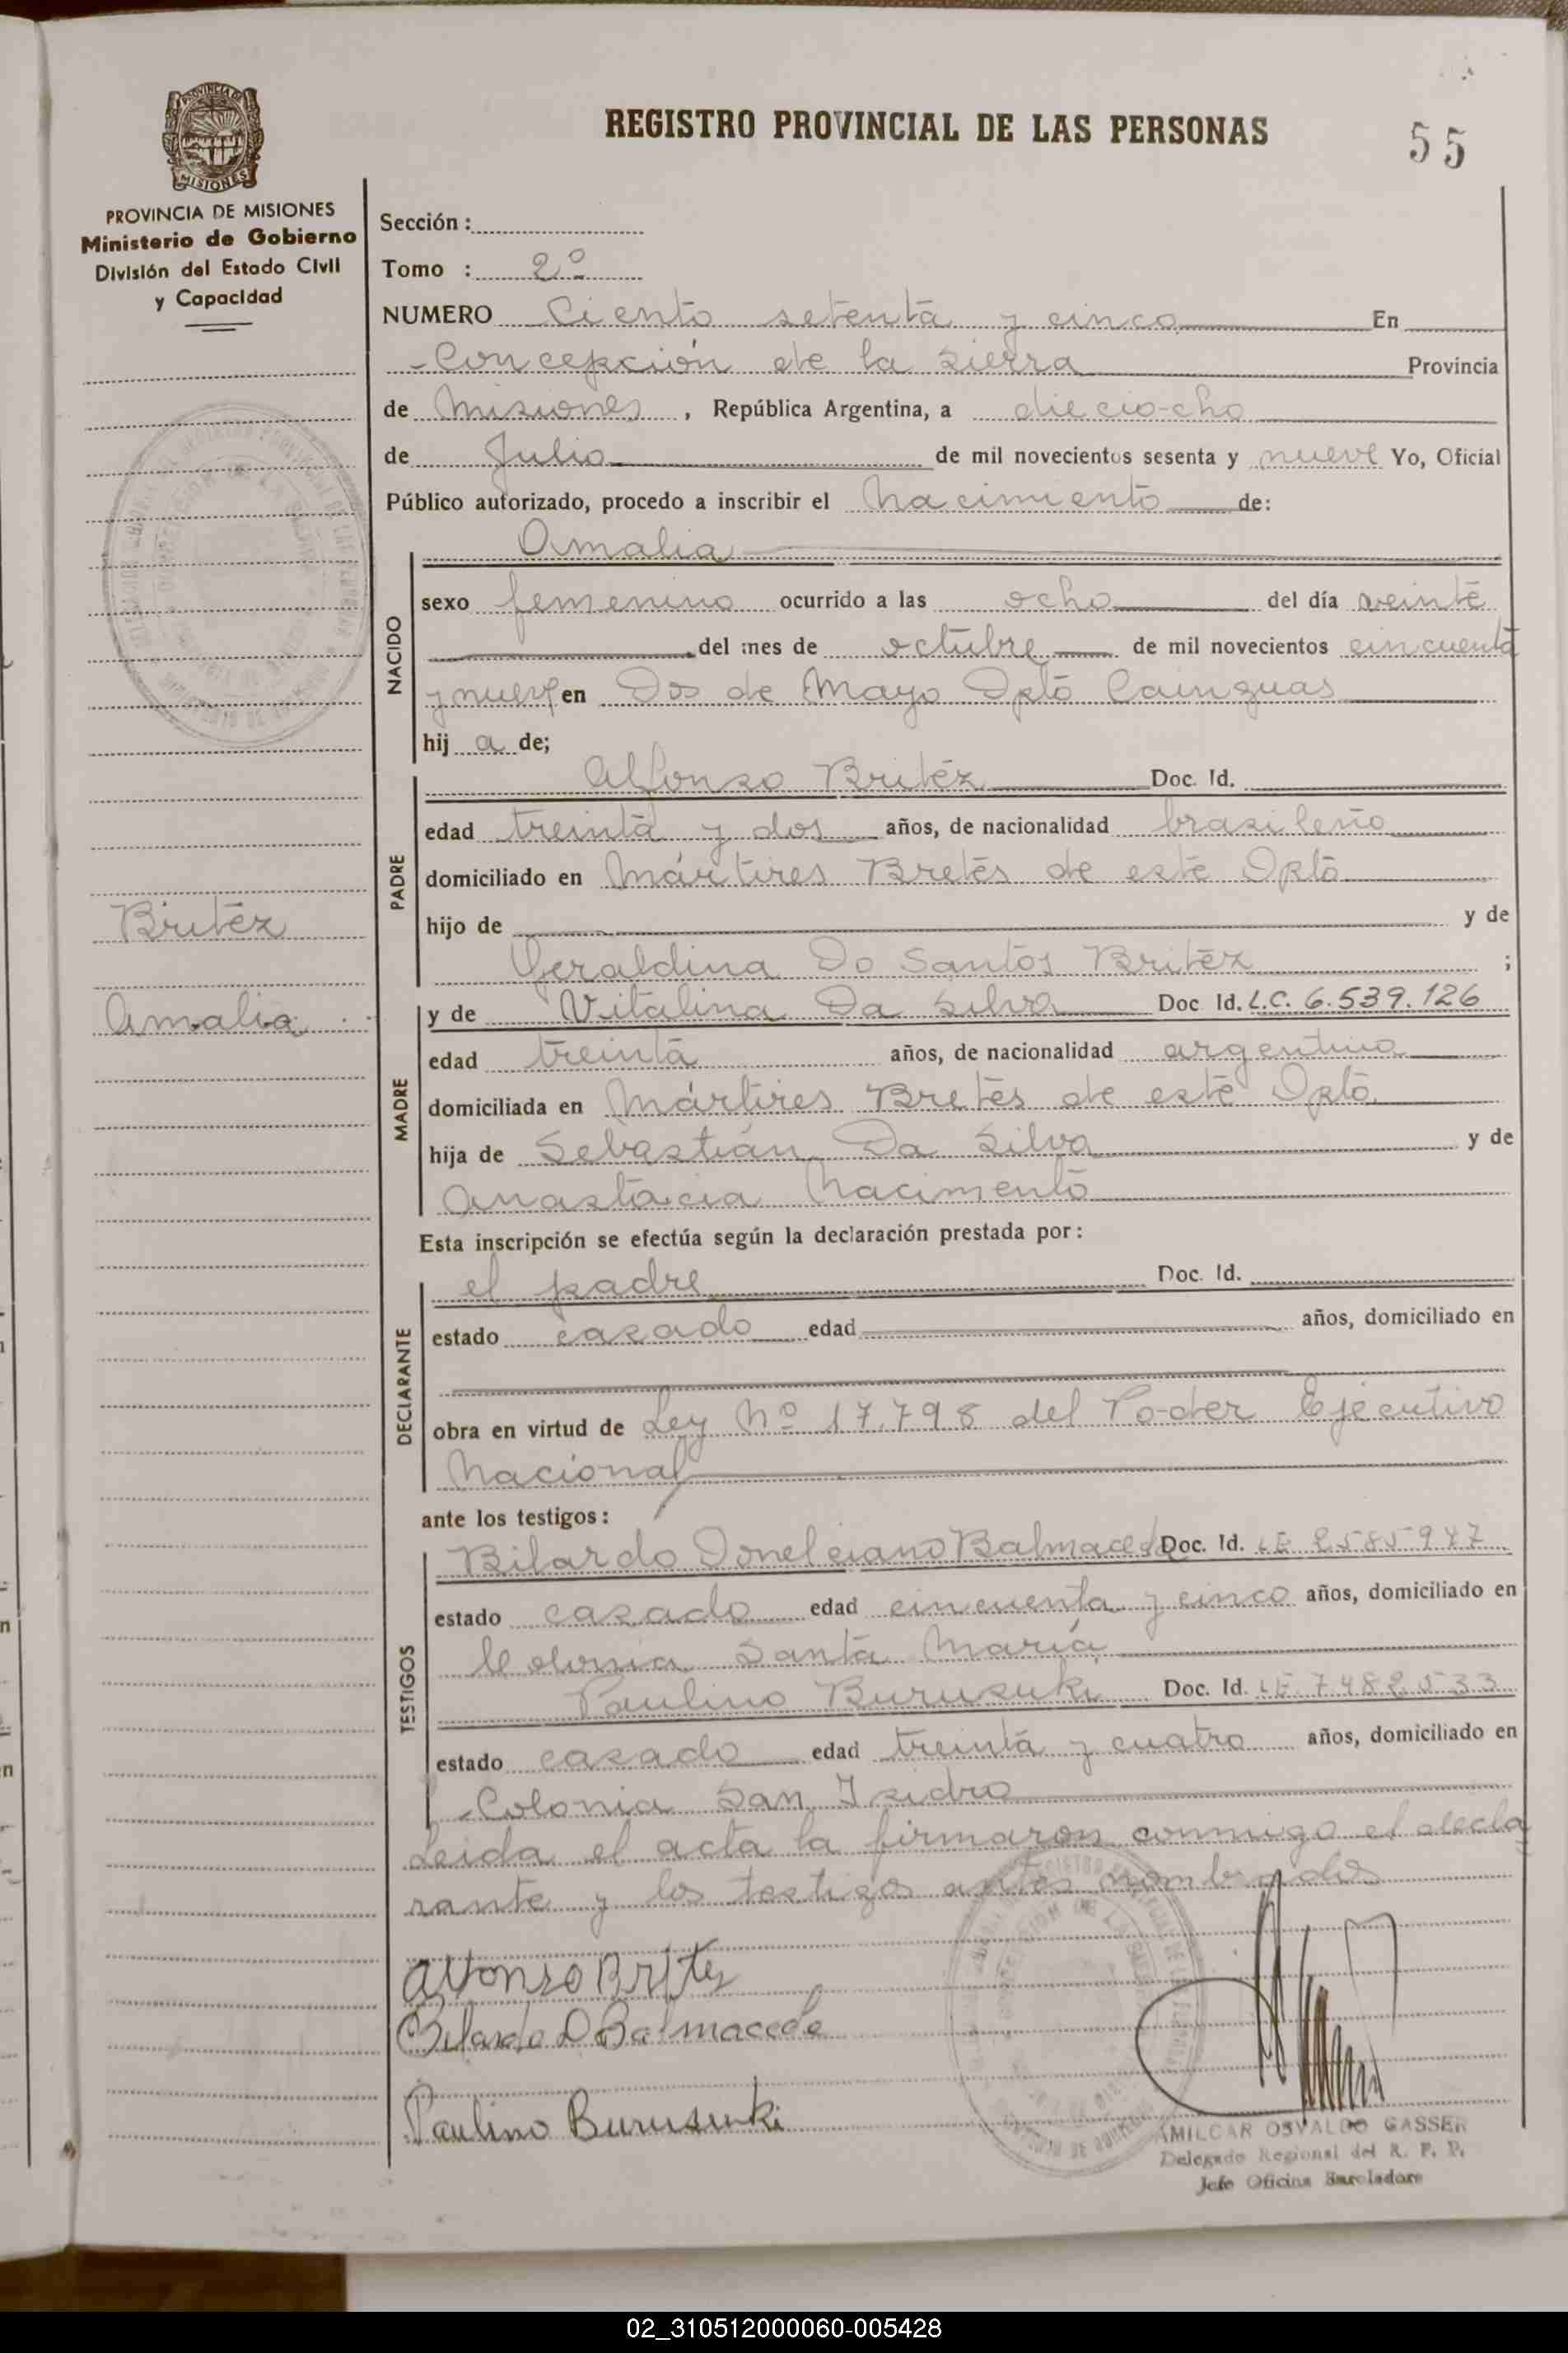 REGISTRO PROVINCIAL DE LAS PERSONAS
55
MISIONES
PROVINCIA DE MISIONES
Ministerio de Gobierno
División del Estado Civil
y Capacidad
Britéz
Amalia
Sección :
Tomo : 2º
NUMERO Ciento setenta y cinco En
Concepción de la Sierra Provincia
de Misiones , República Argentina, a dieciocho
de Julio de mil novecientos sesenta y nueve Yo, Oficial
Público autorizado, procedo a inscribir el nacimiento de:
NACIDO
Amalia
sexo femenino ocurrido a las ocho del día veinte
del mes de octubre de mil novecientos cincuenta
y nueve en Dos de Mayo Dpto Cainguas
hij a de;
PADRE
Alfonso Britéz Doc. Id.
edad treinta y dos años, de nacionalidad brasileño
domiciliado en Mártires Bretes de este Dpto
hijo de y de
Geraldina Do Santos Britéz ;
MADRE
y de Vitalina Da Silva Doc Id. L.C. 6.539.126
edad treinta años, de nacionalidad argentina
domiciliada en Mártires Bretes de este Dpto
hija de Sebastián Da Silva y de
Anastacia Nacimento
Esta inscripción se efectúa según la declaración prestada por :
DECLARANTE
el padre Doc. Id.
estado casado edad años, domiciliado en
obra en virtud de Ley Nº 17.798 del Poder Ejecutivo
Nacional
ante los testigos :
TESTIGOS
Bilardo Donelciano Balmaceda Doc. Id. LE 2585947
estado casado edad cincuenta y cinco años, domiciliado en
Colonia Santa María
Paulino Burusuki Doc. Id. LE 7482533
estado casado edad treinta y cuatro años, domiciliado en
Colonia San Isidro
Leida el acta la firmaron conmigo el decla
rante y los testigos antes nombrados
Alfonso Britez
Bilardo D Balmaceda
Paulino Burusuki
AMILCAR OSVALDO GASSER
Delegado Regional del R. P. P.
Jefe Oficina
02_310512000060-005428